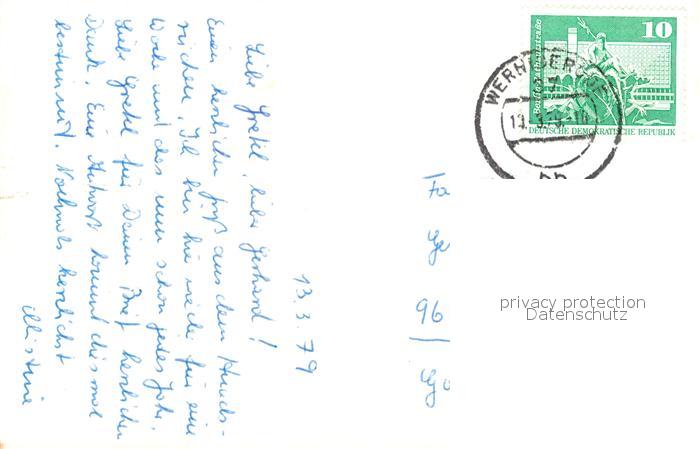 13.3.79
Liebe Gretel, lieber Gerhard!
Einen herzlichen Gruß aus dem Hunds-
rücken. Ich bin hie wieder für eine
Woche und das nun schon jedes Jahr.
Liebe Gretel für Deinen Brief herzlichen
Dank. Eine Antwort kommt diesmal
bestimmt. Nochmals herzlichst
Christine
10
Berlin, Rathausstraße
DEUTSCHE DEMOKRATISCHE REPUBLIK
WERNIGERODE
Fa
Ge
96
privacy protection
Datenschutz